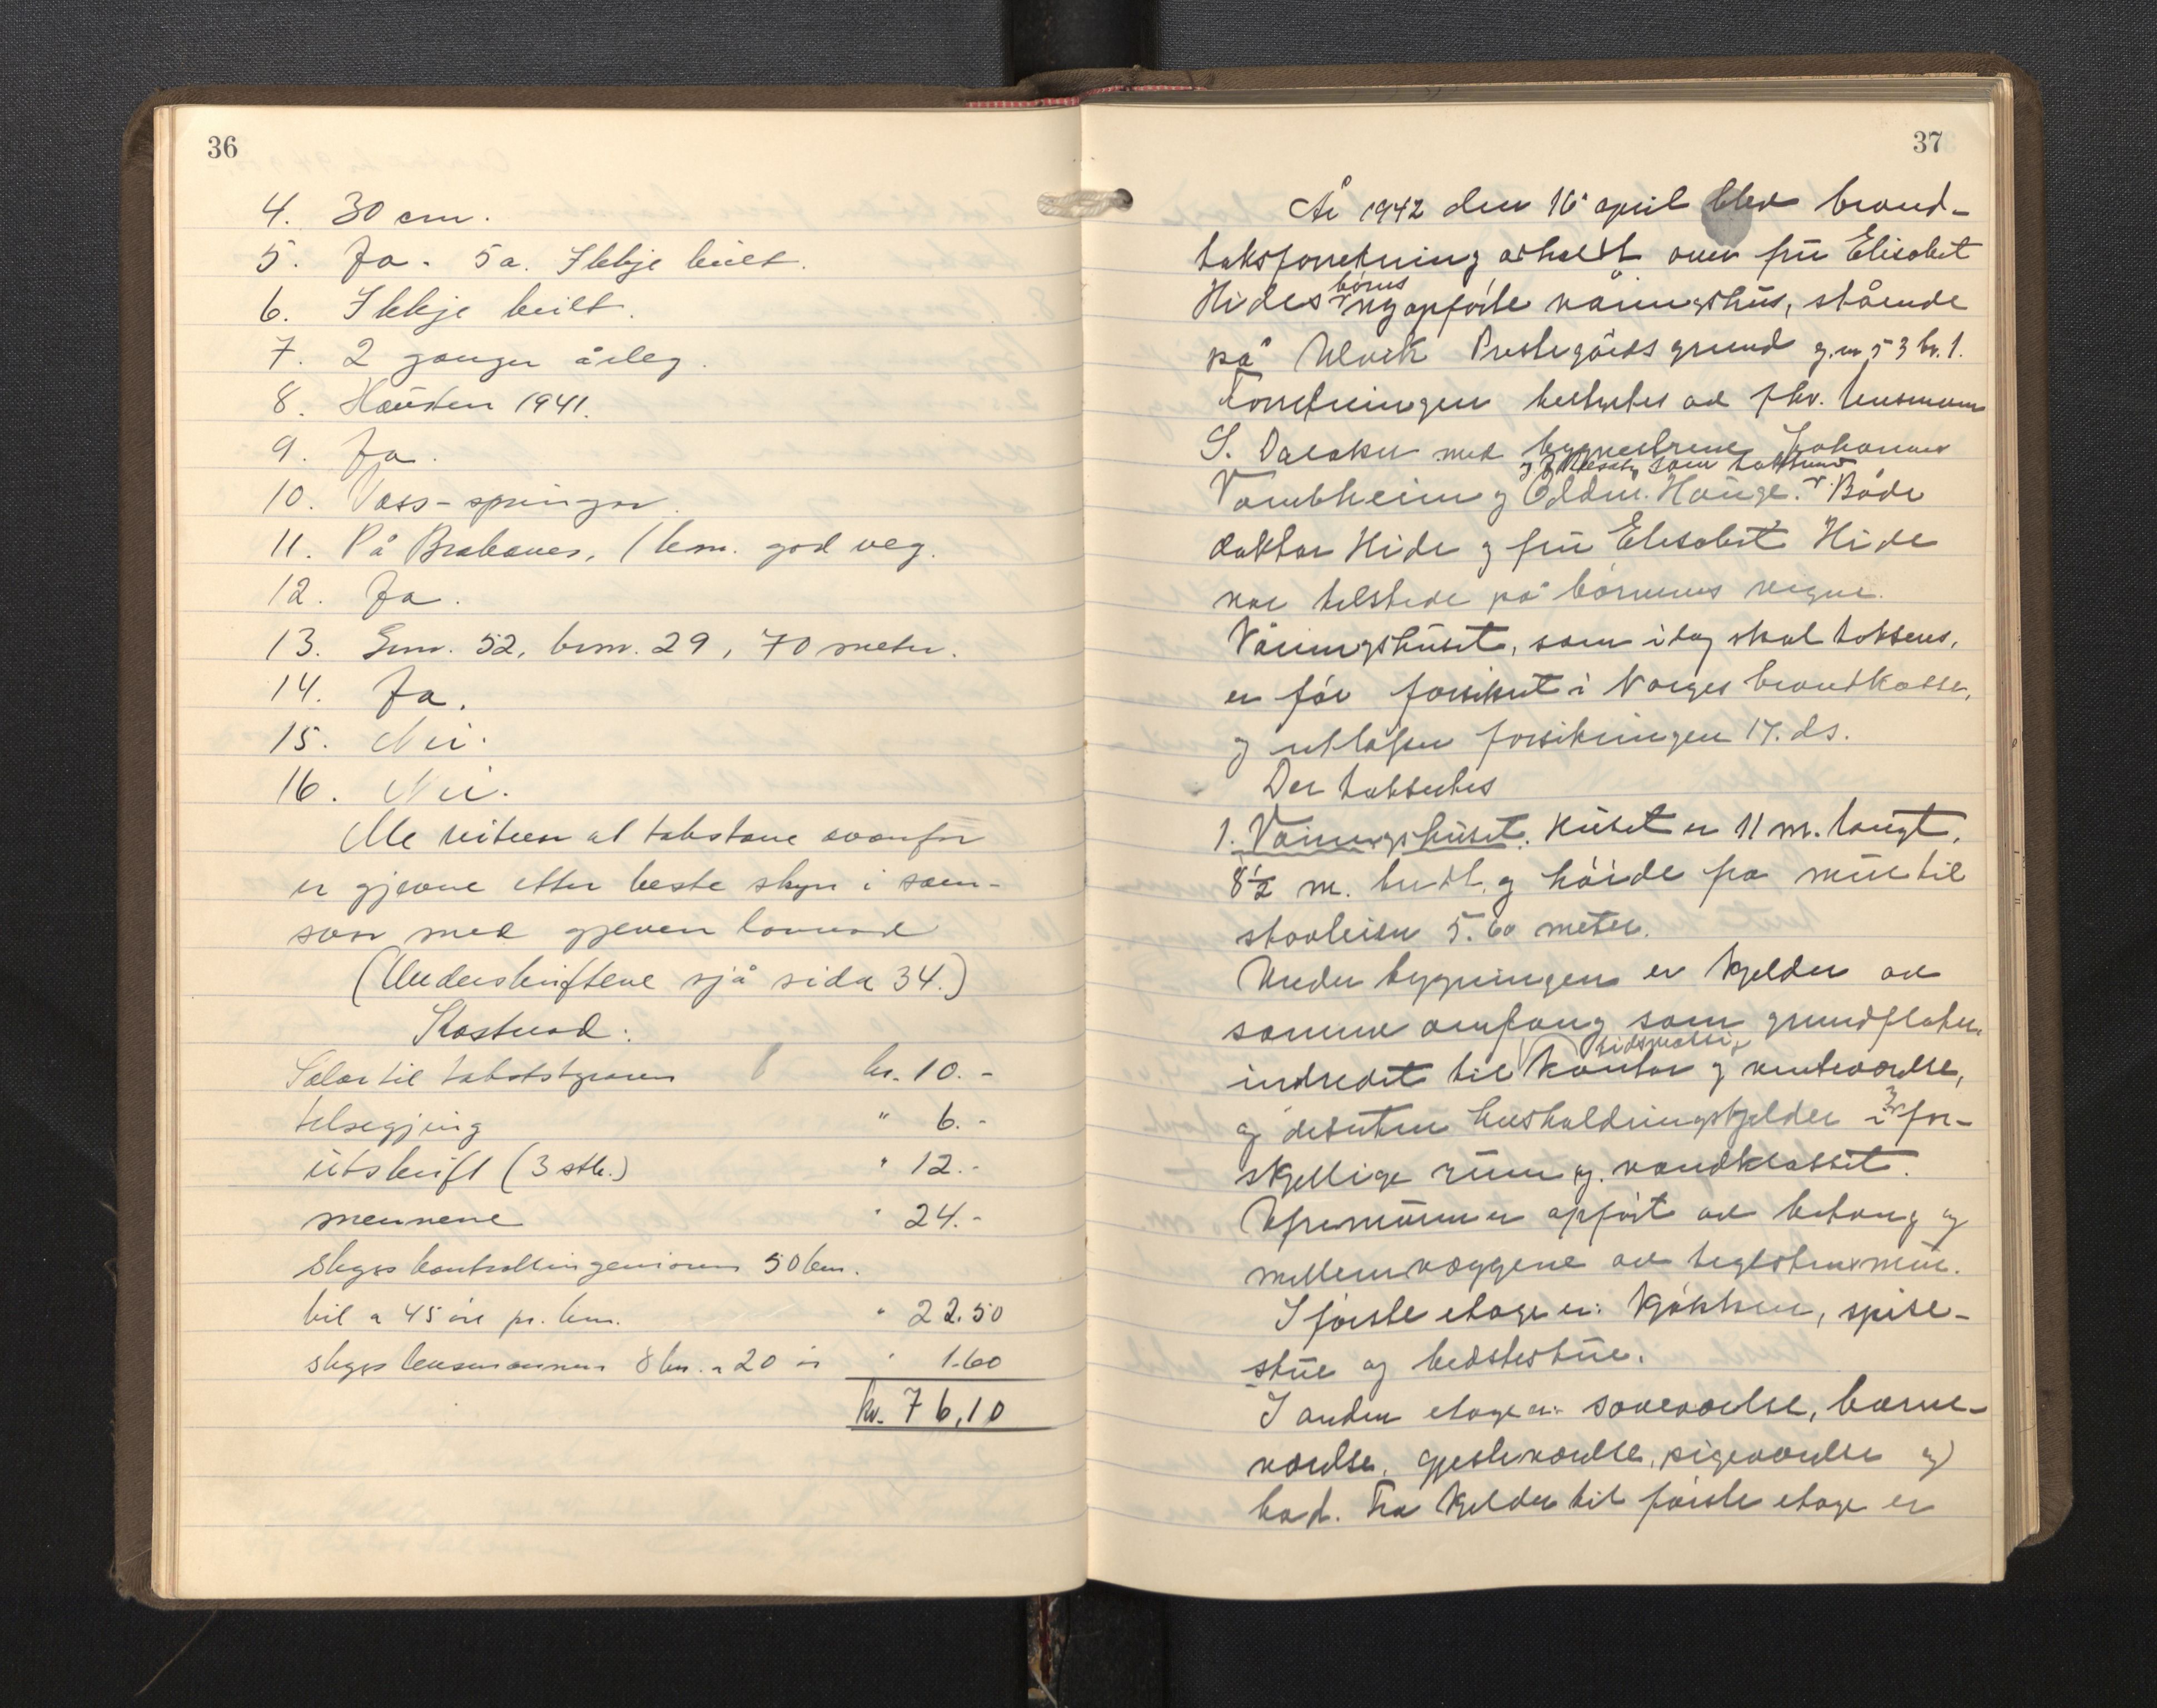 36
4. 30 cm.
5. Ja. 5a. Ikkje built.
6. Ikkje built.
7. 2 gonger årleg.
8. Hausten 1941.
9. Ja.
10. Vass-springar.
11. På Brakanes, 1 km. god veg.
12. Ja.
13. Gnr. 52, bnr. 29, 70 meter.
14. Ja.
15. Nei.
16. Nei.
Me vitnar at takstane ovanfor
er gjevne etter beste skyn i sam-
svar med gjeven lovnad
(Underskriftene sjå sida 34.)
Kostnad:
Salar til takststyraren kr. 10.-
tilsegjing " 6.-
utskrift (3 stk.) " 12.-
mennene " 24.-
skyss kontrollingeniøren 50 km.
bil a 45 øre pr. km. " 22.50
skyss lensmannen 8 km. a 20 ør " 1.60
kr. 76,10
37
År 1942 den 16 april blev brand-
taksforretning avholdt over frú Elisabet
Hides børns nyopførte våningshús, stående
på Ulvik Prestegårds grund g.nr. 53 br. 1.
Forretningen bestyrtes av fhv. lensmann
S. Dalaker med bygmestrene Johannes
Vambheim og Oddm. Hauge. som takstmenn Både
doktor Hide og frú Elisabet Hide
var tilstede på børnenes vegne.
Våningshúset, som idag skal takseres,
er før forsikret i Norges brandkasse,
og utløper forsikringen 17. ds.
Der takseertes
1. Våningshúset. Húset er 11 m. langt,
8½ m. bredt, og høide fra múr til
stavleien 5.60 meter.
Under bygningen er kjelder av
samme omfang som grundflaten,
indredet til tidsmæssig kontor og venteværelse,
og desuten husholdningskjelder i 3 for-
skjellige rúm og vandklosset.
Yttermúren er opført av betong og
mellemvæggene av teglstensmúr.
I første etage er: kjøkken, spise-
stúe og bedstestúe.
I anden etage er: soveværelse, barne-
værelse, gjesteværelse, pigeværelse og
bad. Fra kjelder til første etage er